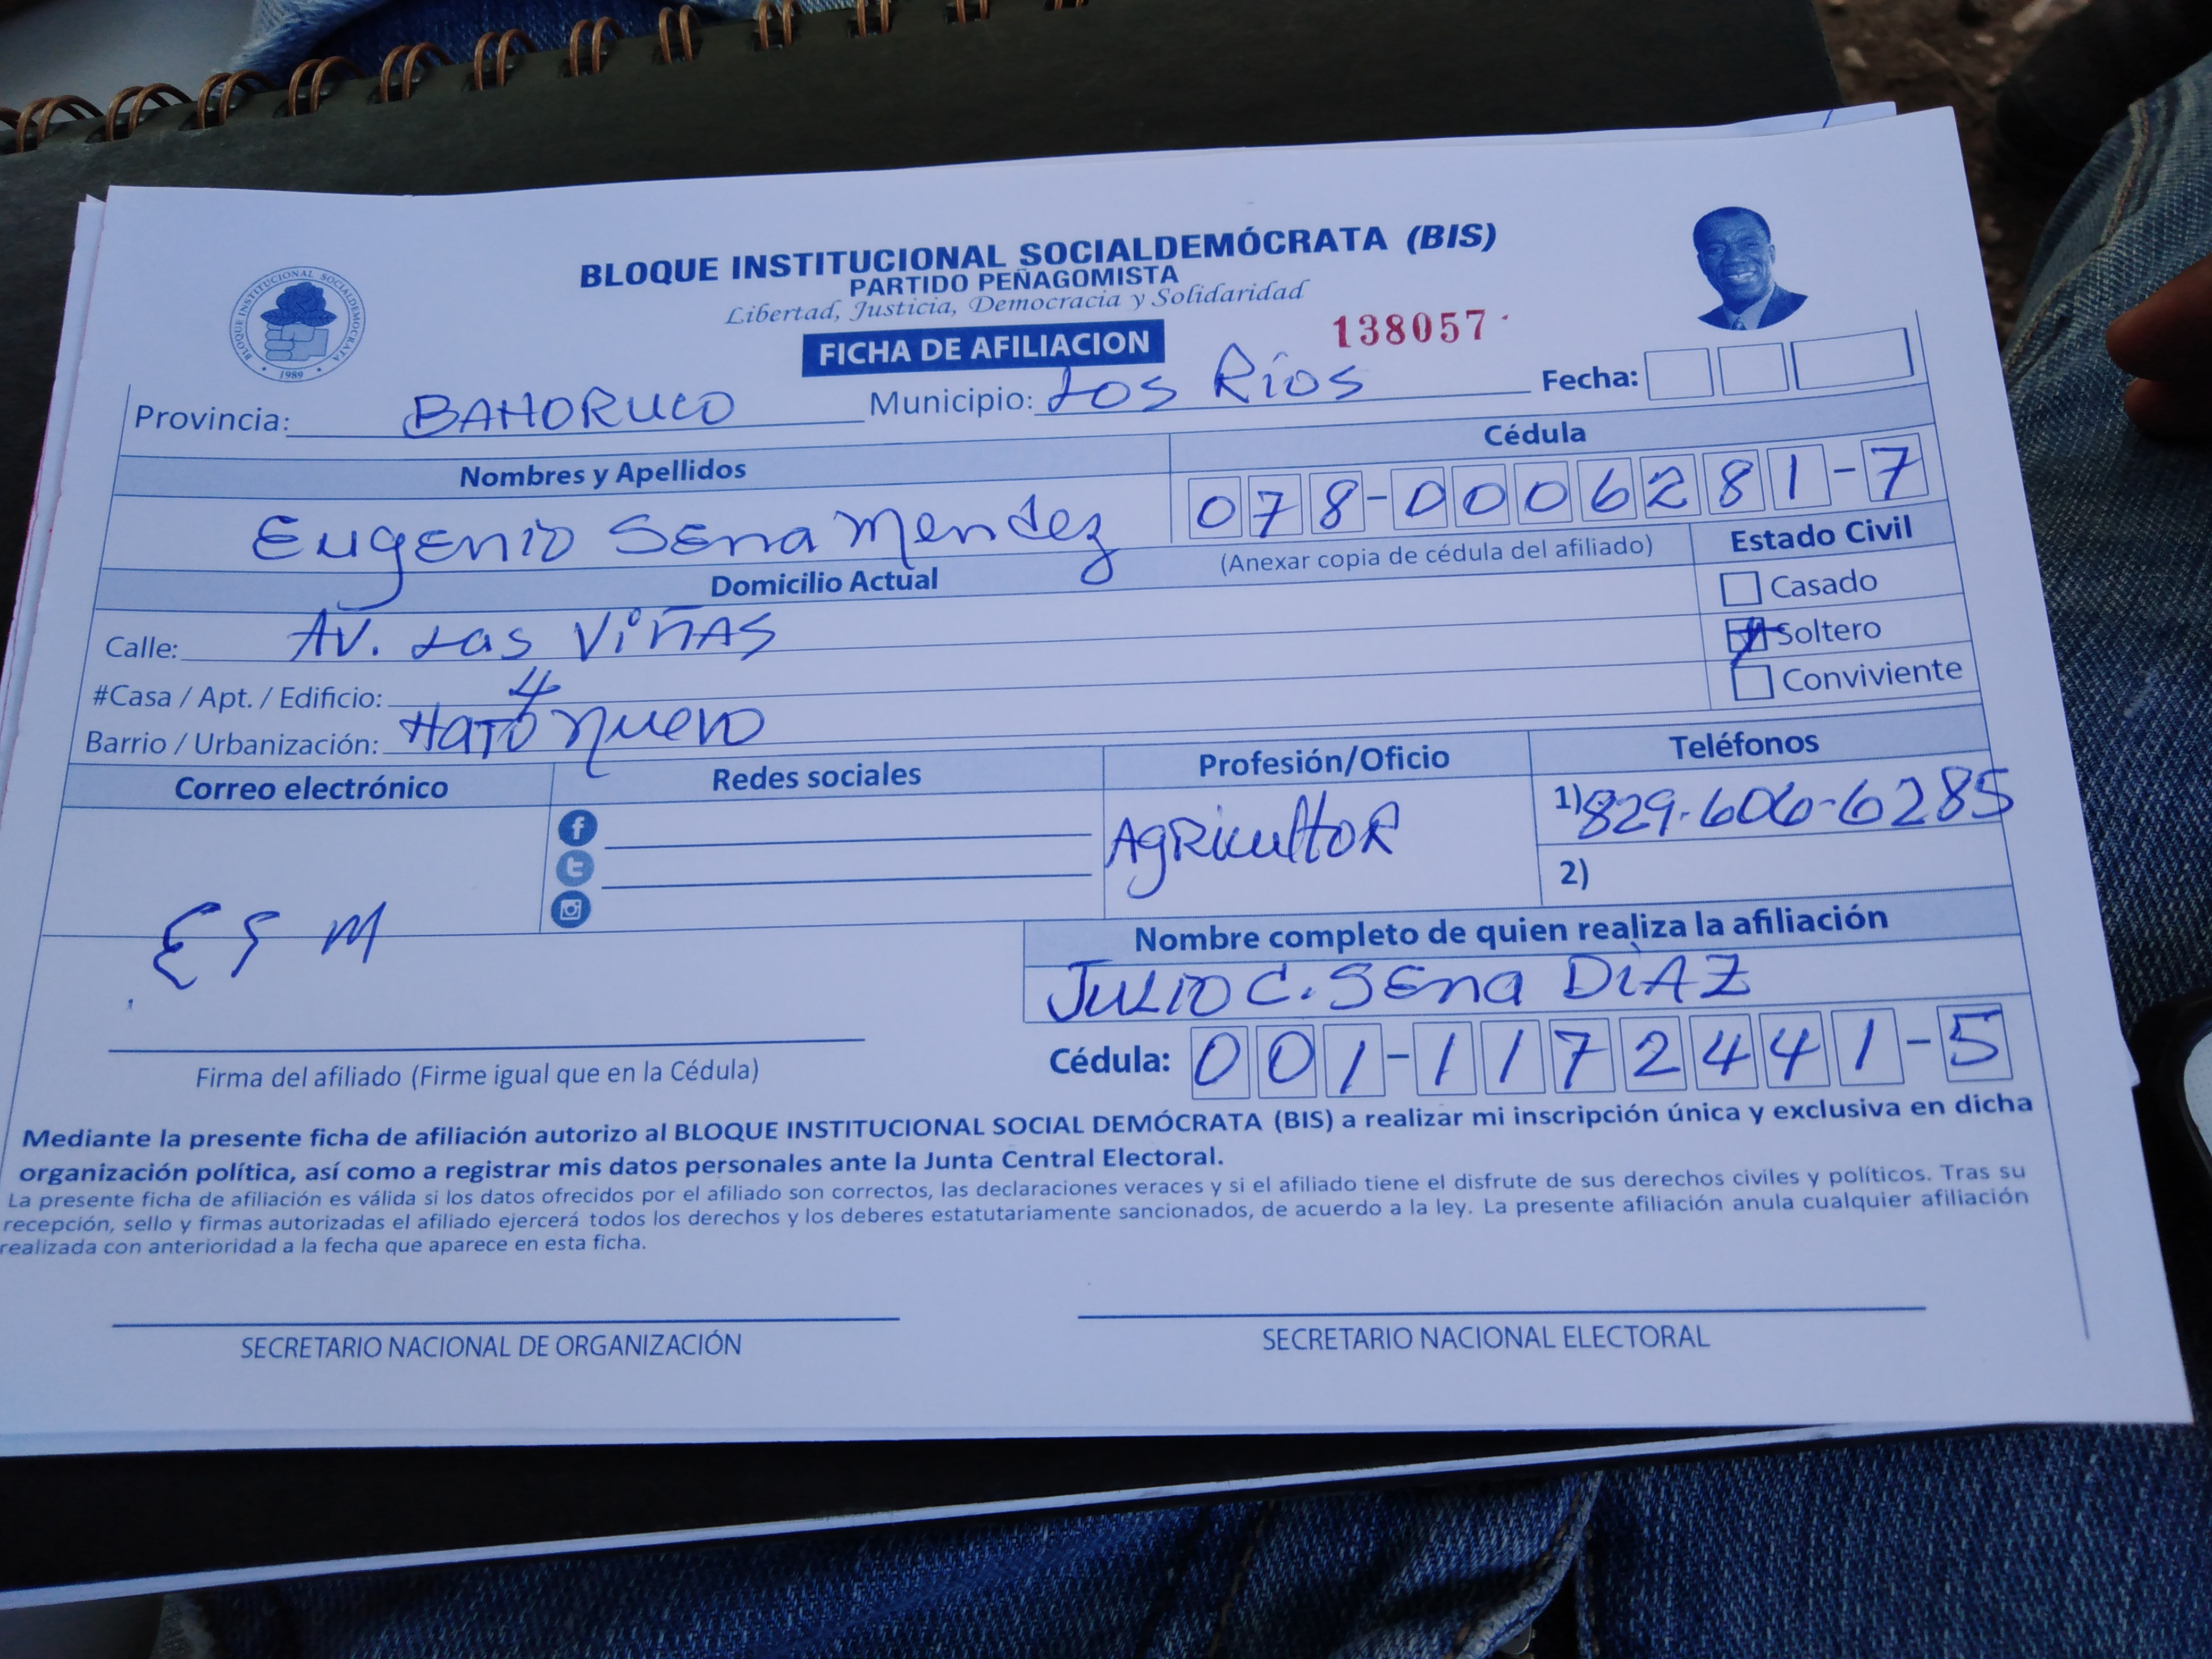 BLOQUE INSTITUCIONAL SOCIALDEMÓCRATA (BIS)
PARTIDO PEÑAGOMISTA
Libertad, Justicia, Democracia y Solidaridad
BLOQUE INSTITUCIONAL SOCIALDEMOCRATA
1989
FICHA DE AFILIACION
138057
Provincia: BAHORUCO Municipio: Los Ríos Fecha:
Nombres y Apellidos Cédula
Eugenio Sena Mendez 078-0006281-7
(Anexar copia de cédula del afiliado) Estado Civil
Domicilio Actual
Casado
Calle: AV. Las Viñas
Soltero
#Casa / Apt. / Edificio: 4
Conviviente
Barrio / Urbanización: Hato nuevo
Correo electrónico Redes sociales Profesión/Oficio Teléfonos
Agricultor 1) 829-606-6285
2)
E S M
Nombre completo de quien realiza la afiliación
Julio C. Sena DiAZ
Cédula: 001-1172441-5
Firma del afiliado (Firme igual que en la Cédula)
Mediante la presente ficha de afiliación autorizo al BLOQUE INSTITUCIONAL SOCIAL DEMÓCRATA (BIS) a realizar mi inscripción única y exclusiva en dicha
organización política, así como a registrar mis datos personales ante la Junta Central Electoral.
La presente ficha de afiliación es válida si los datos ofrecidos por el afiliado son correctos, las declaraciones veraces y si el afiliado tiene el disfrute de sus derechos civiles y políticos. Tras su
recepción, sello y firmas autorizadas el afiliado ejercerá todos los derechos y los deberes estatutariamente sancionados, de acuerdo a la ley. La presente afiliación anula cualquier afiliación
realizada con anterioridad a la fecha que aparece en esta ficha.
SECRETARIO NACIONAL DE ORGANIZACIÓN SECRETARIO NACIONAL ELECTORAL